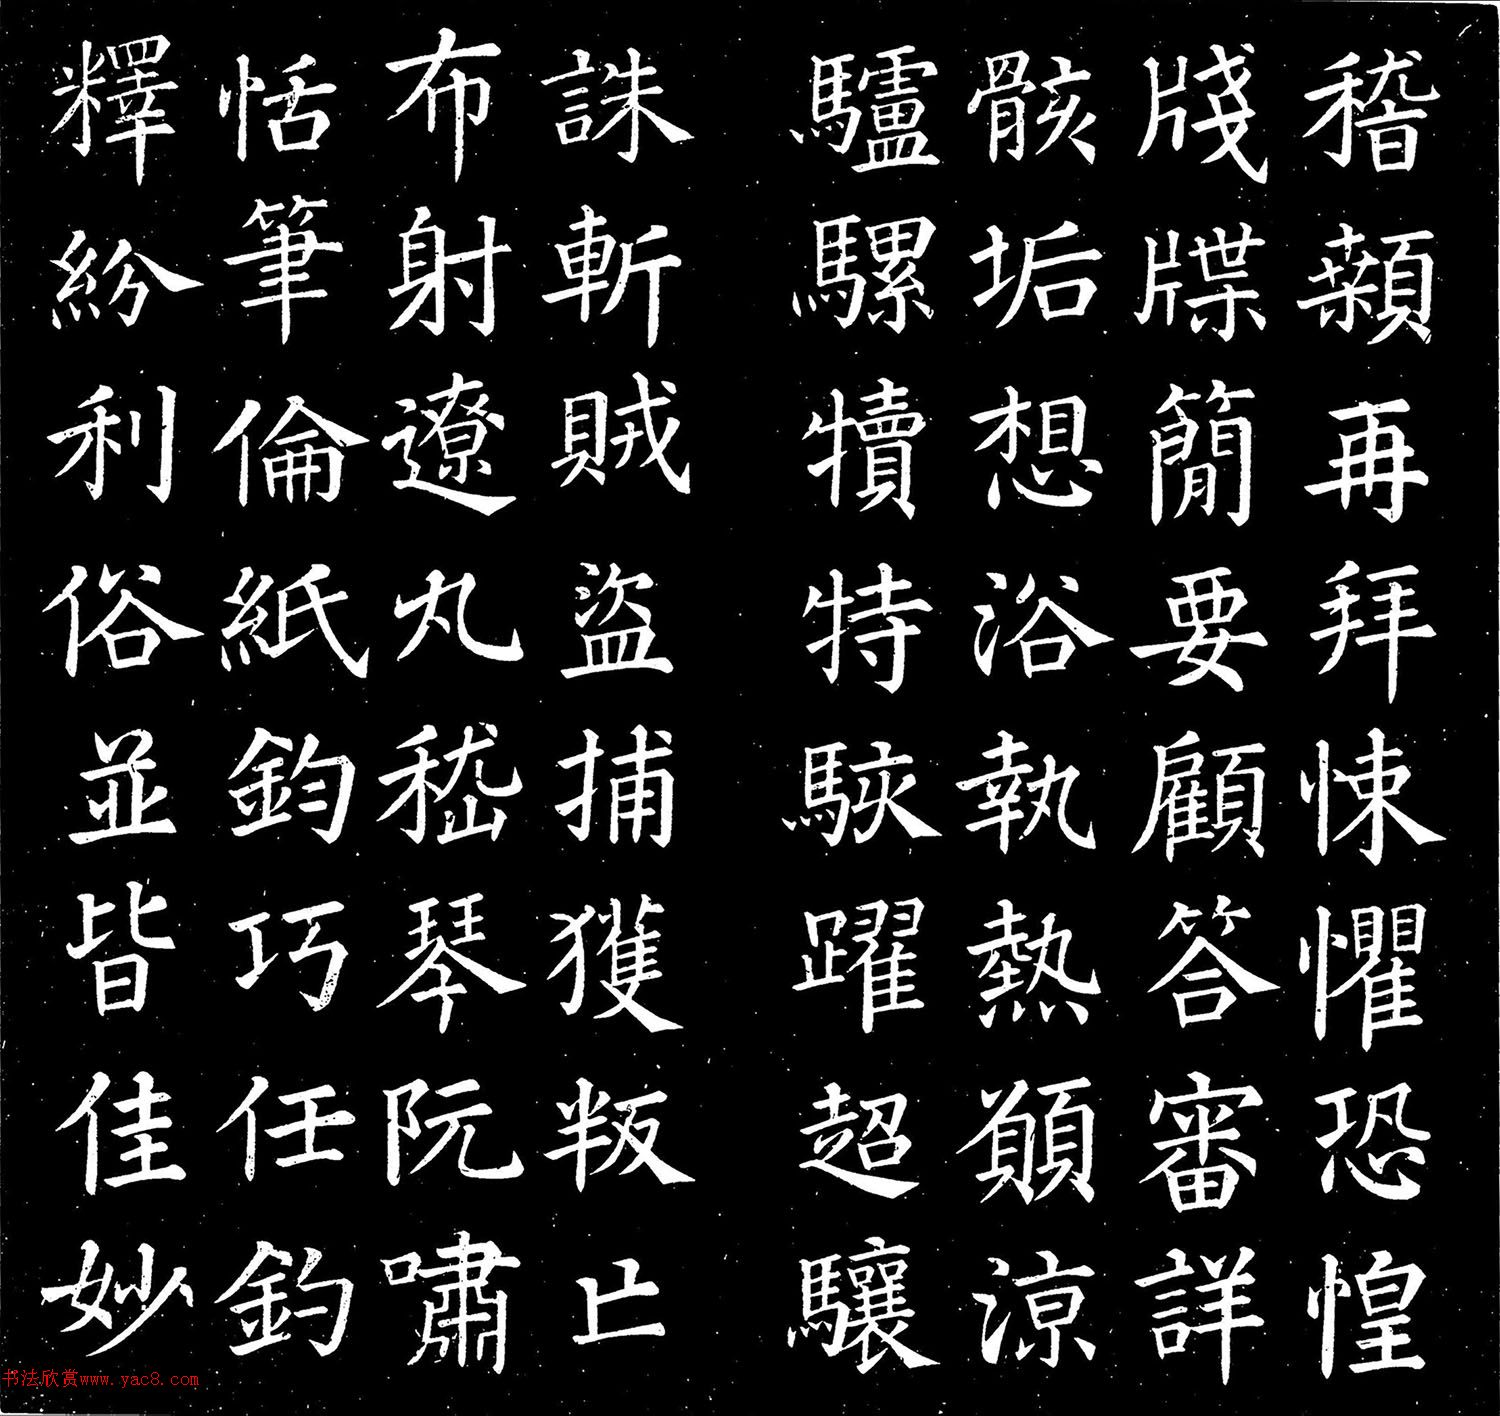 稽顙再拜悚懼恐惶
牋牒簡要顧答審詳
骸垢想浴執熱願涼
驢騾犢特駭躍超驤
誅斬賊盜捕獲叛亡
布射遼丸嵇琴阮嘯
恬筆倫紙鈞巧任釣
釋紛利俗並皆佳妙
书法欣赏www.yac8.com